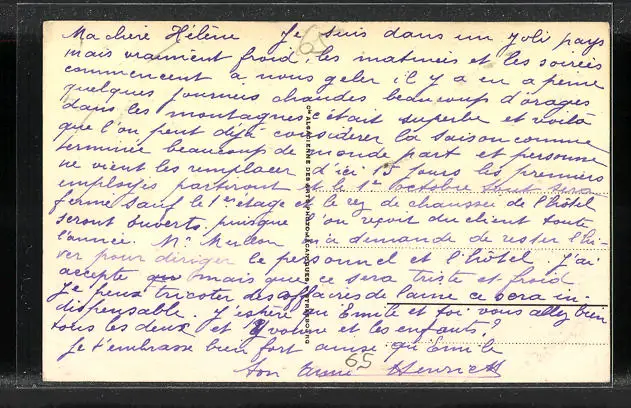 Ma chère Hélène Je suis dans un joli pays
mais vraiment froid, les matinées et les soirées
commencent a nous geler il y a eu a peine
quelques journées chaudes beaucoup d'orages
dans les montagnes c'était superbe et voilà
que l'on peut déjà considérer la saison comme
terminée beaucoup de monde part et personne
ne vient les remplacer d'ici 15 jours les premiers
employés partiront et le 1er octobre tout sera
fermé sauf le 1er etage et le rez de chaussée de l'hôtel
seront ouverts puisque l'on reçoit du client toute
l'année. Mr m'a demandé de rester l'hi-
ver pour diriger le personnel et l'hôtel. J'ai
accepté mais que ce sera triste et froid
Je peux tricoter des affaires de laine ce sera in-
dispensable. J'espère qu'Emile et toi vous allez bien
tous les deux et Yvonne et les enfants?
Je t'embrasse bien fort ainsi qu'Emile
ton
65
65